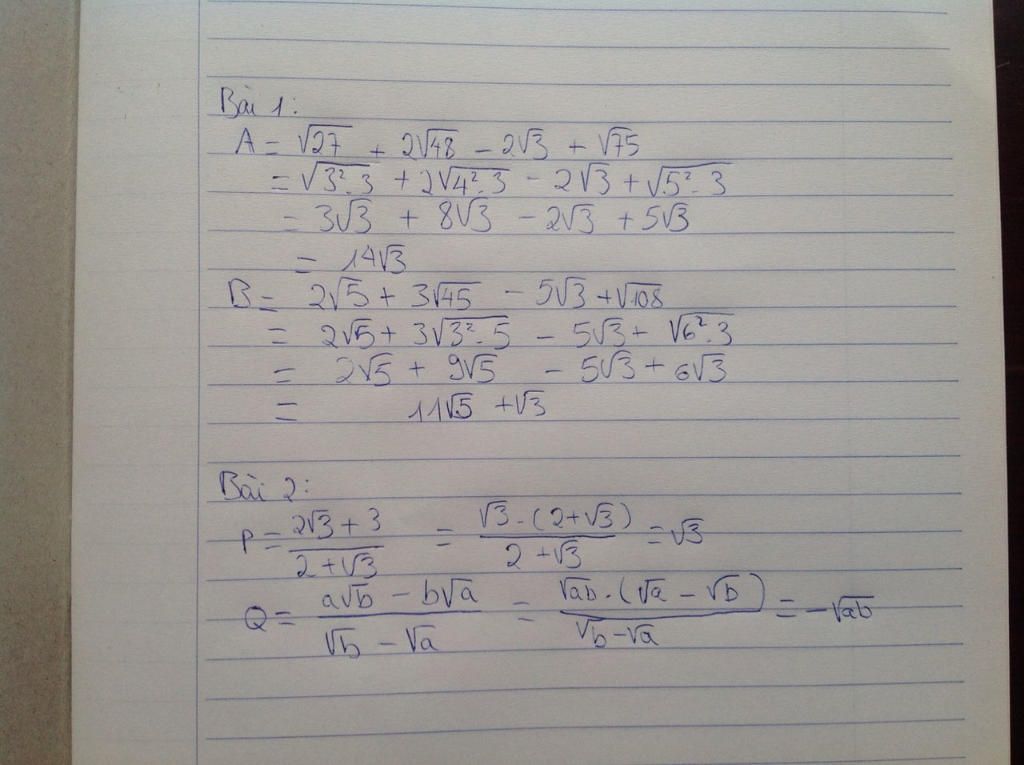 Bài 1:
A = √27 + 2√48 - 2√3 + √75
= √3².3 + 2√4².3 - 2√3 + √5².3
= 3√3 + 8√3 - 2√3 + 5√3
= 14√3
B = 2√5 + 3√45 - 5√3 + √108
= 2√5 + 3√3².5 - 5√3 + √6².3
= 2√5 + 9√5 - 5√3 + 6√3
= 11√5 + √3
Bài 2:
P = (2√3 + 3)/(2 + √3) = (√3.(2+√3))/(2 + √3) = √3
Q = (a√b - b√a)/(√b - √a) = (√ab.(√a - √b))/(√b - √a) = -√ab